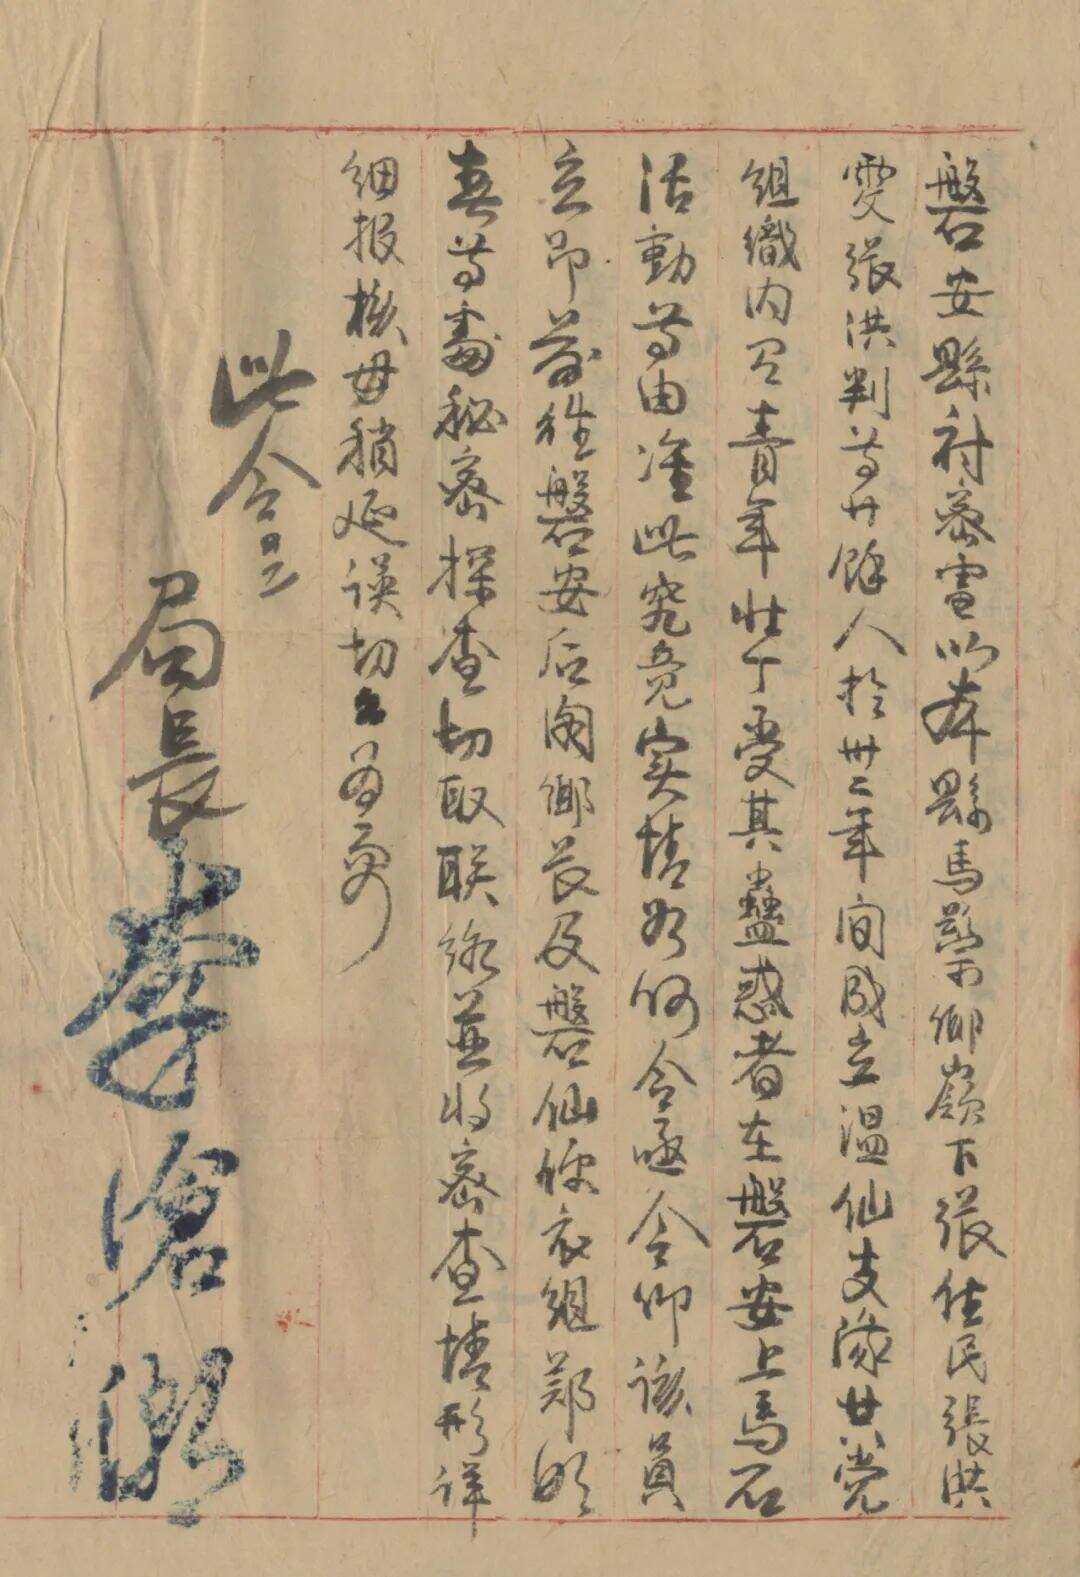 磐安縣府泰電以本縣馬鞍鄉嶺下張住民張洪
雯張洪判等廿餘人於卅二年間成立温仙支隊共党
組織内召青年壮丁受其蠱惑者在磐安上馬石
活動等由准此究竟实情如何合亟令仰该員
立即前往磐安后闹鄉長及磐仙便衣组郑明
春等处秘密探查切取联络並将密查情形详
细报核毋稍延误切切为要
此令
局長李滄